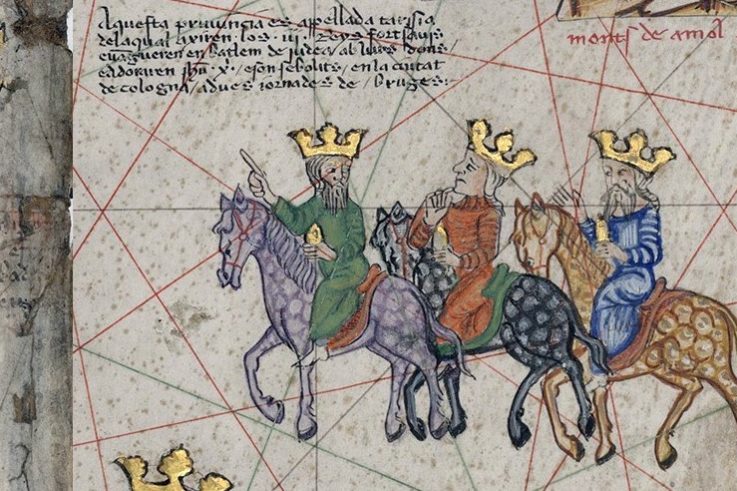 Aquesta prouincia es apellada tarsia
de la qual axiren los .iii. Reys fort sauis
e uagueren en batlem de judea / ab lurs dons /
e adoraren jhu. x. / e son sebolits / en la ciutat
de cologna / a dues iornades de / bruges:
monts de amol